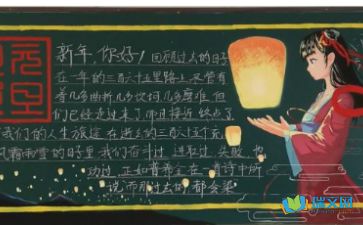 元旦
新年,你好!回顾过去的日子
在一年的三百六十五里路上,尽管有
着几多曲折,几多坎坷,几多磨难,但
们已经走过来了,而且接近终点了
我们的人生旅途,在逝去的三百六十五个
风霜雨雪的日子里,我们奋斗过,进取过,失败
功过,正如普希金在一首诗中所
说,而那过去的都会
瑞文网